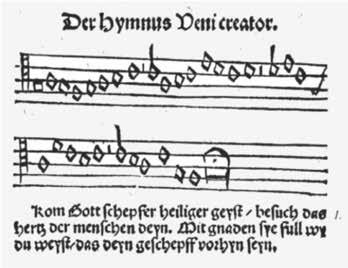 Der Hymnus Veni creator.
Kom Gott schepfer heiliger geyst / besuch das
hertz der menschen deyn. Mit gnaden sye full wy
du weyst / das deyn geschepff vorhyn seyn.